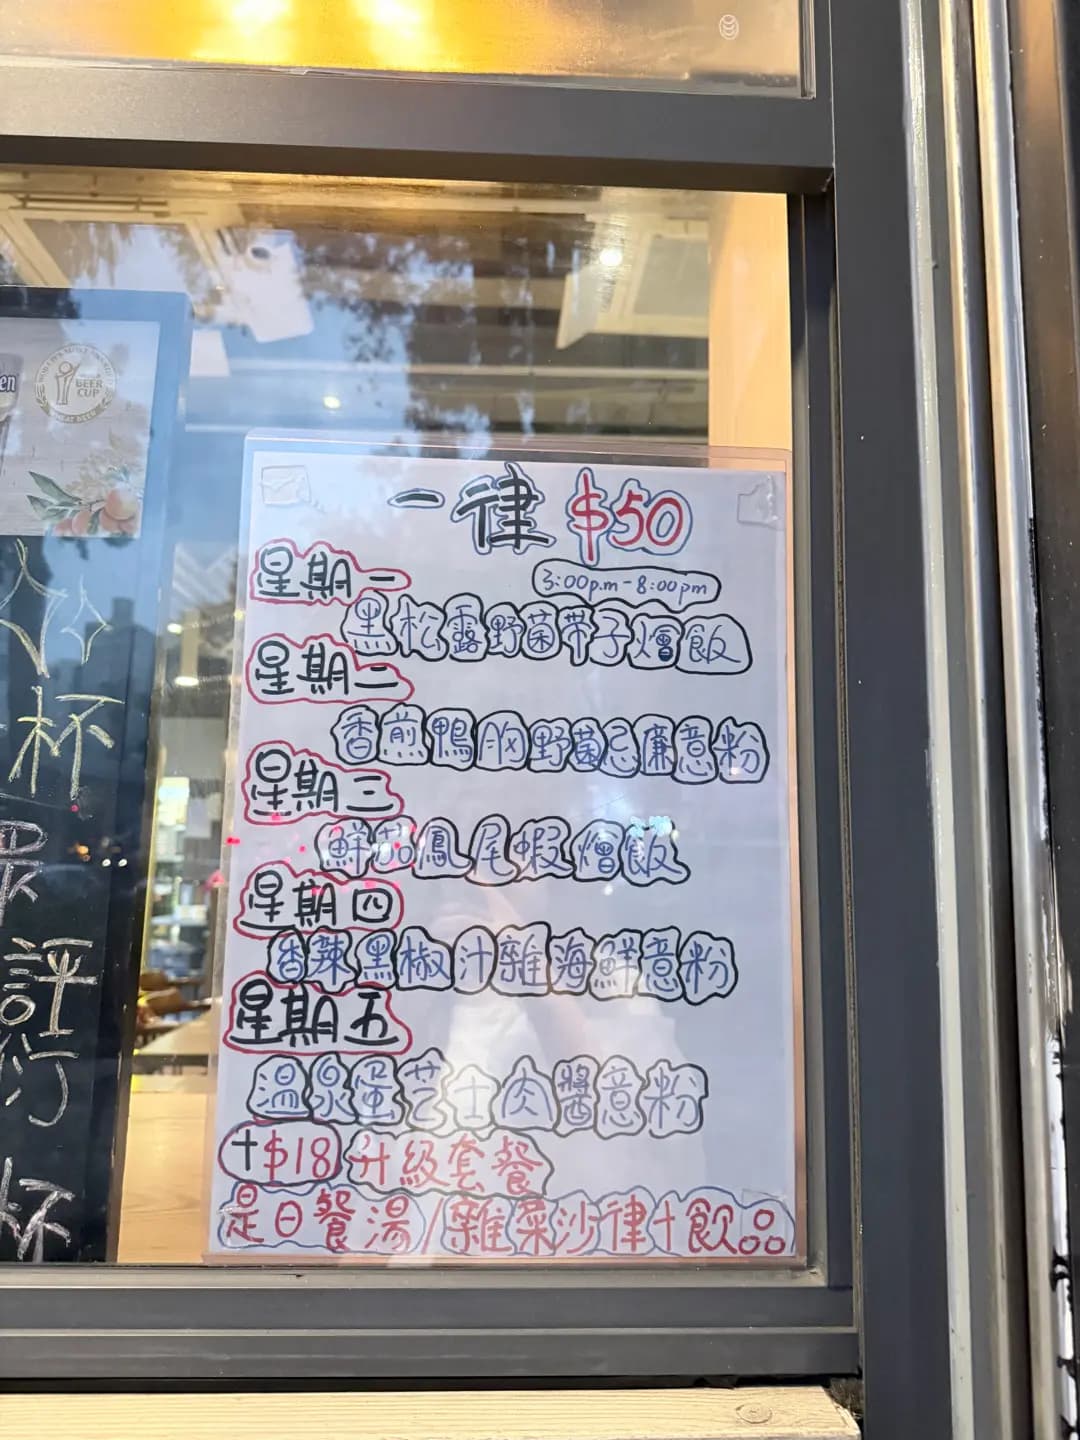 BEER
CUP
杯
評
杯
一律 $50
星期一
3:00p.m-8:00pm
黑松露野菌帶子燴飯
星期二
香煎鴨胸野菌忌廉意粉
星期三
鮮茄鳳尾蝦燴飯
星期四
香辣黑椒汁雜海鮮意粉
星期五
溫泉蛋芝士肉醬意粉
+$18 升級套餐
是日餐湯/雜菜沙律+飲品